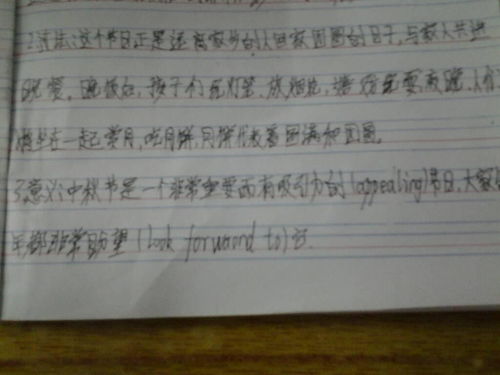 2.活法:这个节日正是远离家乡的人回家团圆的日子,与家人共进
晚餐。晚饭后,孩子们玩灯笼、放烟花、
坐在一起赏月,吃月饼,月饼代表着圆满和团圆。
3.意义:中秋节是一个非常重要而有吸引力的(appealing)节日,大家
年都非常盼望(look forward to)它.